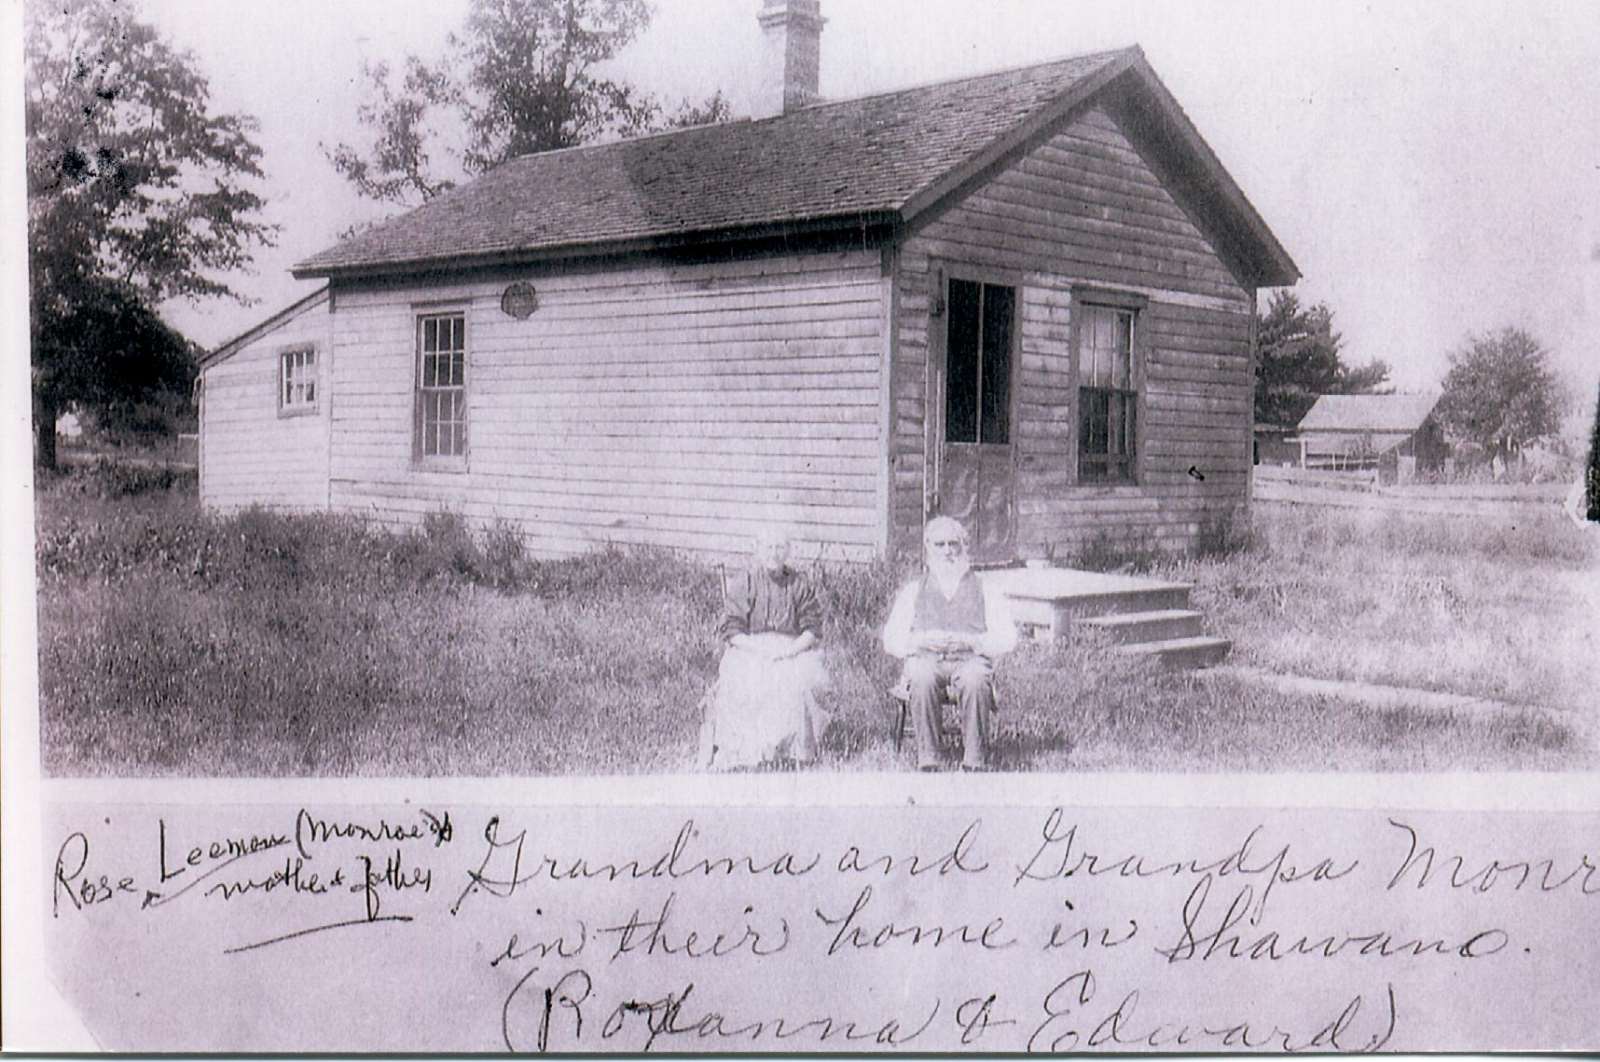 Rose Leemon (Monroe)'s
mother & father
Grandma and Grandpa Monr
in their home in Shawano.
(Roxanna & Edward)